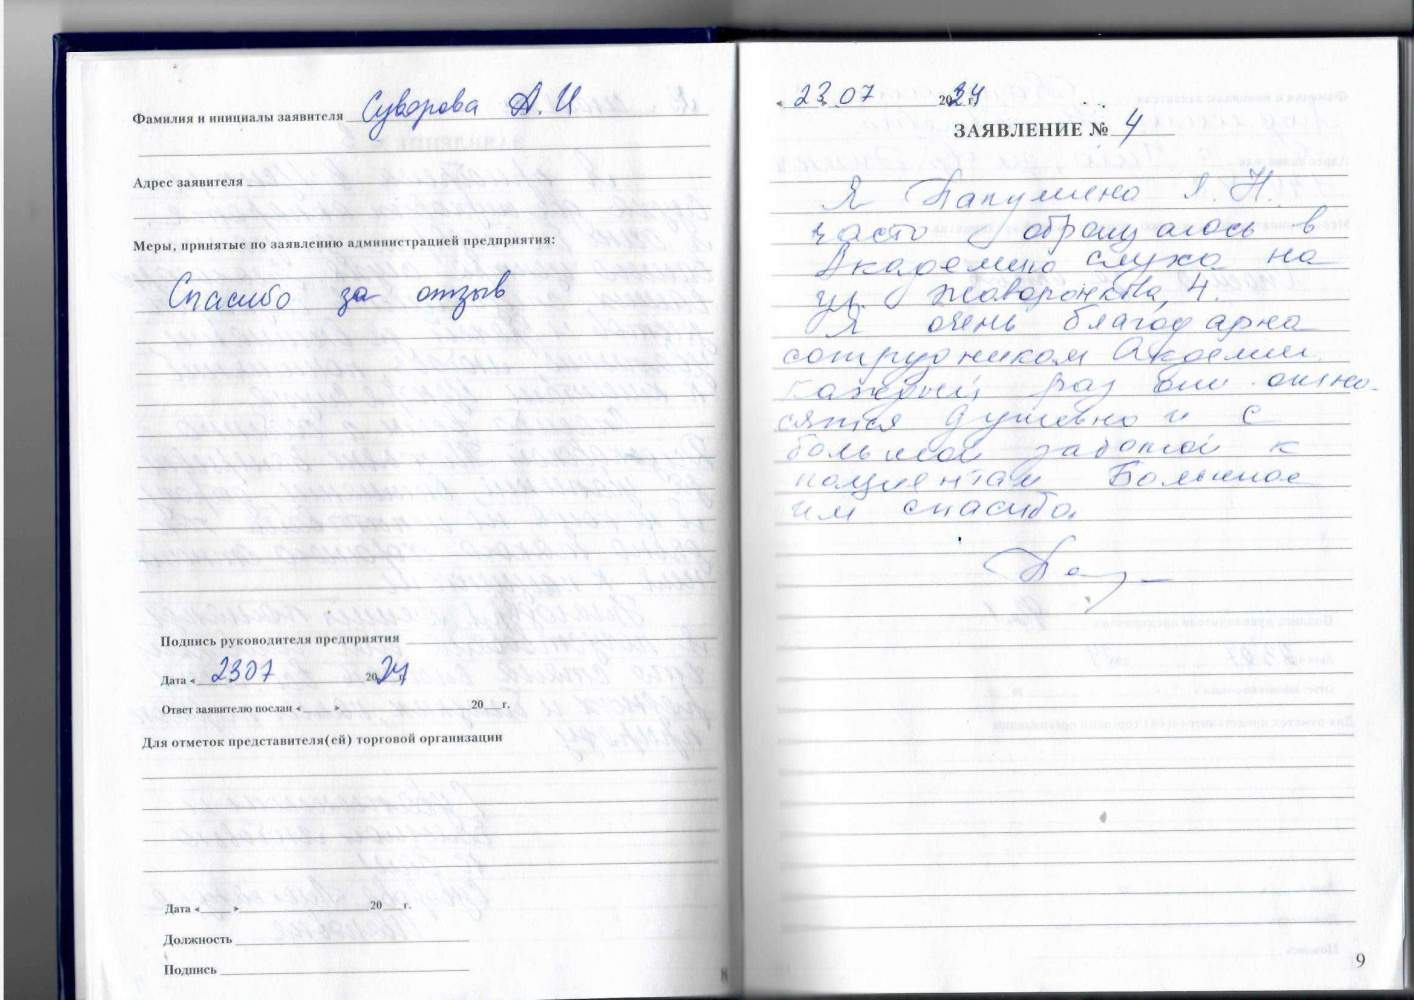 Фамилия и инициалы заявителя Суворова А.И
Адрес заявителя
Меры, принятые по заявлению администрацией предприятия:
Спасибо за отзыв
Подпись руководителя предприятия
Дата « 2307 2024 г.
Ответ заявителю послан «____»____ 20__г.
Для отметок представителя(ей) торговой организации
Дата «____»____ 20__г.
Должность
Подпись
8
« 23 07 2024 г.
ЗАЯВЛЕНИЕ № 4
Я Папушина Л.Н.
часто обращаюсь в
Академию слуха на
ул. Жаворонкова, 4.
Я очень благодарна
сотрудникам Академии.
каждый раз они отно-
сятся душевно и с
большой заботой к
пациентам Большое
им спасибо.
9